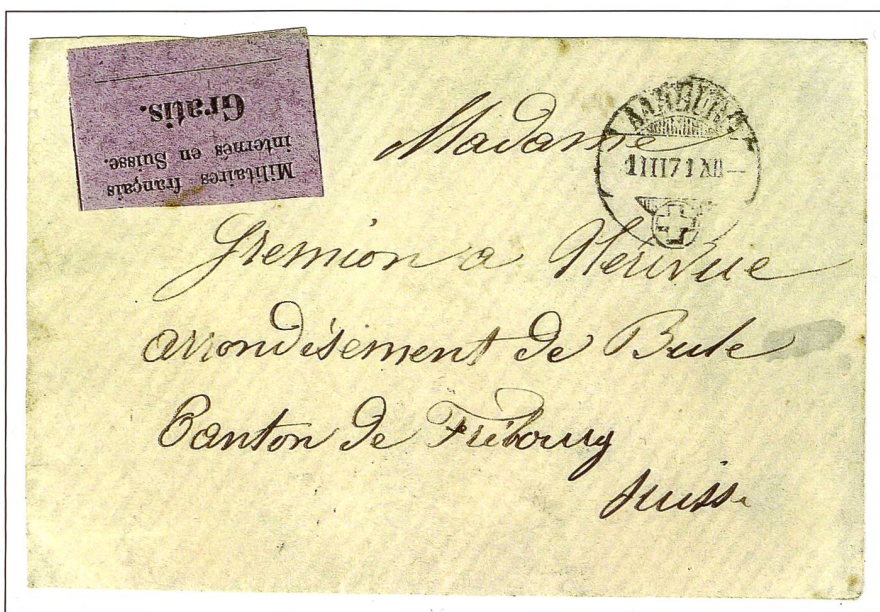 Militaires français
internés en Suisse.
Gratis.
AARBURG
1 III 71 XII
Madame
Gremion a
arrondisement de Bule
Canton de Fribourg
Suisse